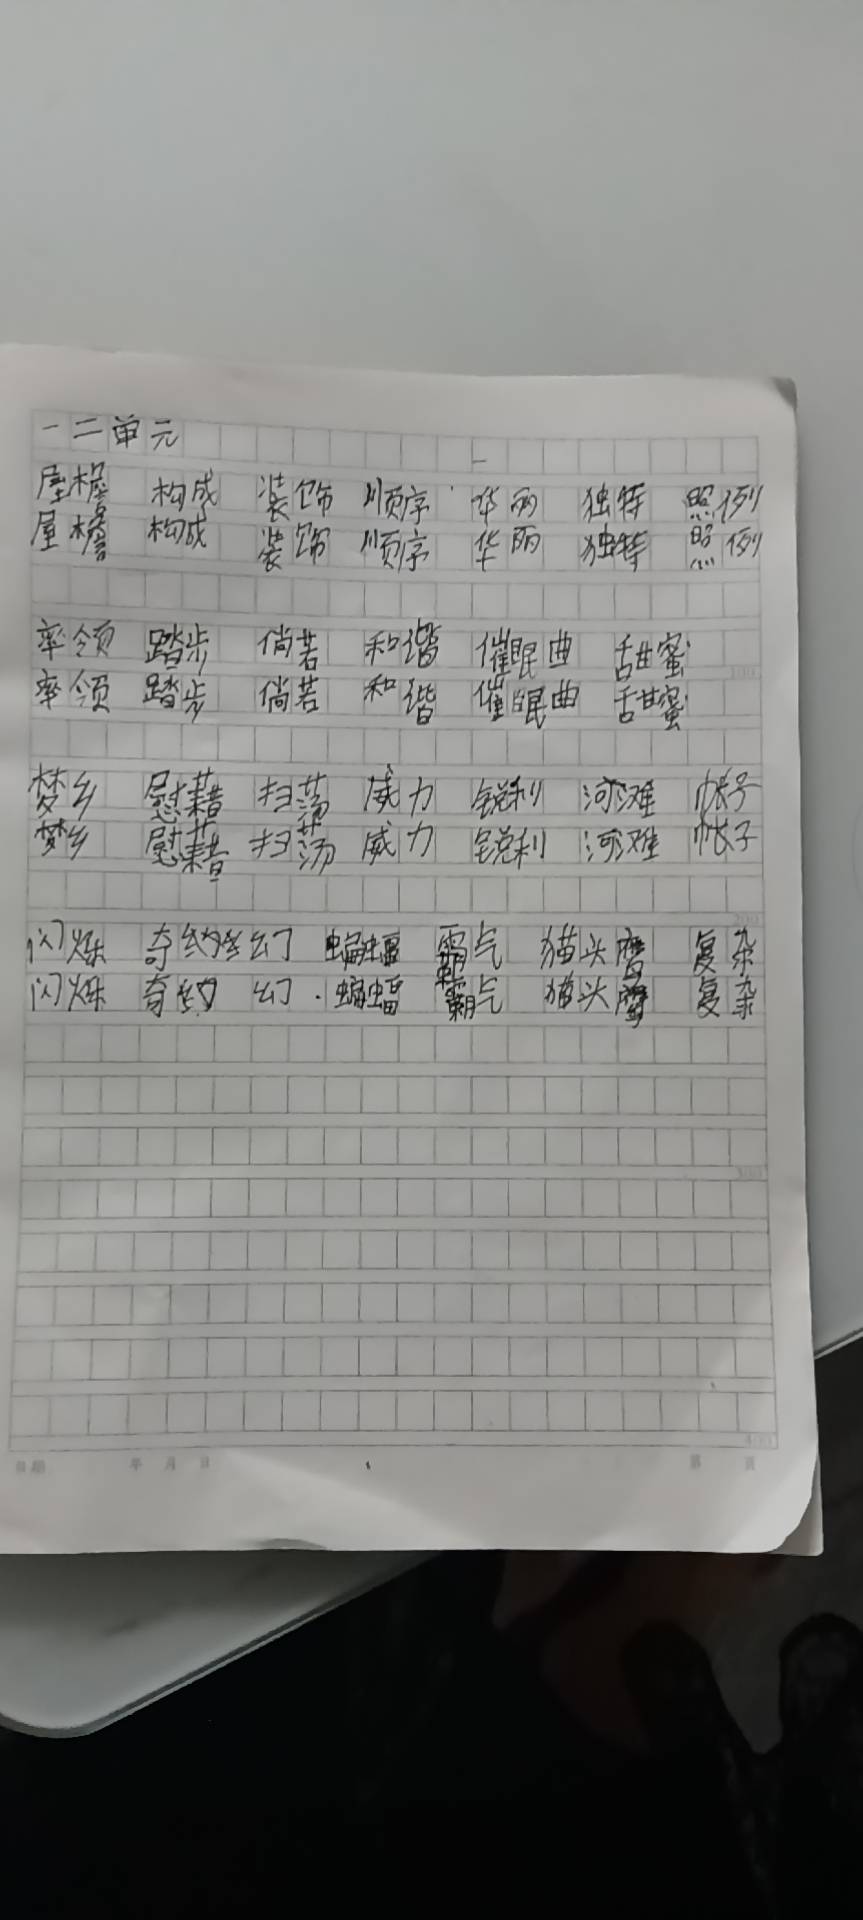 一二单元
屋檐 构成 装饰 顺序 华丽 独特 照例
屋檐 构成 装饰 顺序 华丽 独特 照例
率领 踏步 倘若 和谐 催眠曲 甜蜜
100
率领 踏步 倘若 和谐 催眠曲 甜蜜
梦乡 慰藉 扫荡 威力 锐利 河滩 帐子
梦乡 慰藉 扫荡 威力 锐利 河滩 帐子
200
闪烁 奇 幻 蝙蝠 霸气 猫头鹰 复杂
闪烁 奇 幻 蝙蝠 霸气 猫头鹰 复杂
300
400
年 月 日 第 页